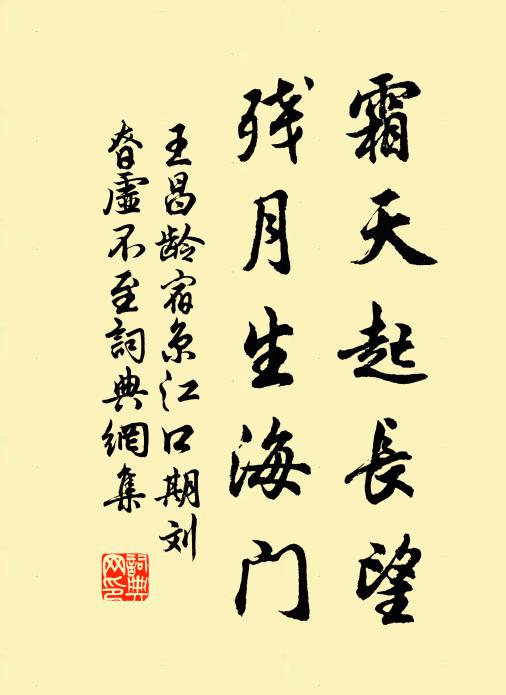 霜天起长望
残月生海门
王昌龄宿京江口期刘
眘虚不至詞典網集
詞典网印